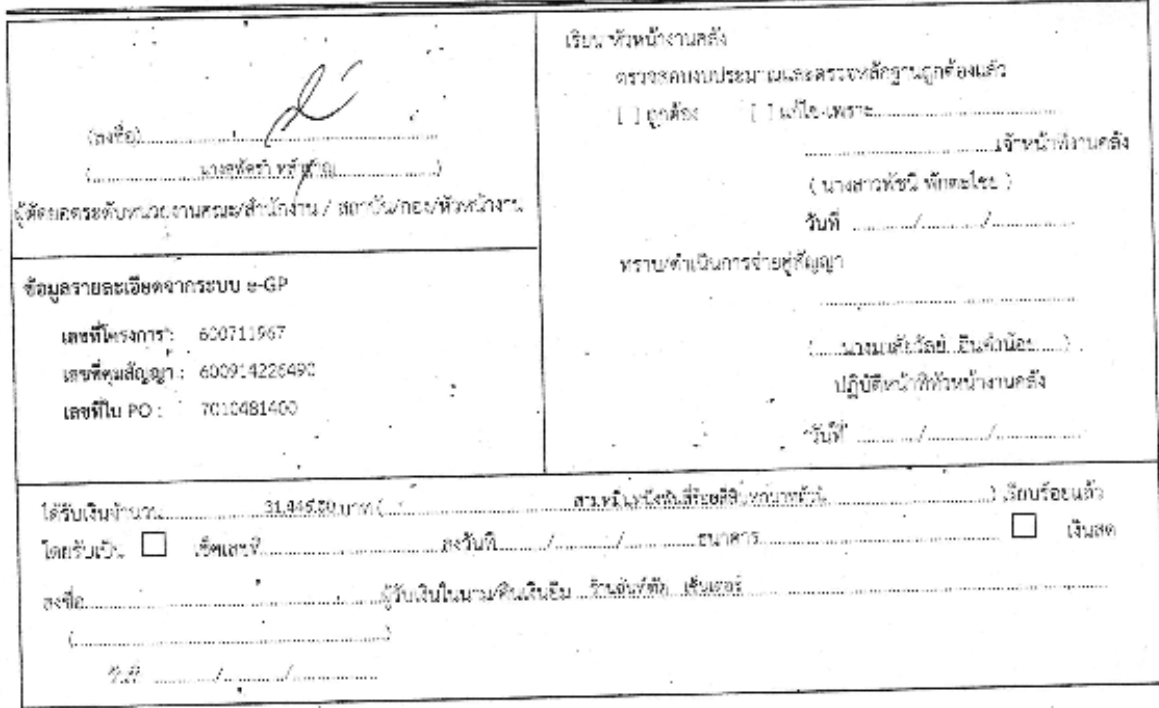 (ลงชื่อ)
ผู้ตัดยอดระดับหน่วยงานคณะ/สำนักงาน / สถาบัน/กอง/หัวหน้างาน
ข้อมูลรายละเอียดจากระบบ e-GP
เลขที่โครงการ : 600711967
เลขที่คุมสัญญา : 600914226490
เลขที่ใบ PO : 7010481400
เรียน หัวหน้างานคลัง
ตรวจสอบงบประมาณและตรวจหลักฐานถูกต้องแล้ว
[ ] ถูกต้อง [ ] แก้ไข-เพราะ
เจ้าหน้าที่งานคลัง
( นางสาวพัชนี พักตะไชย )
วันที่ / /
ทราบ/ดำเนินการจ่ายคู่สัญญา
ปฏิบัติหน้าที่หัวหน้างานคลัง
วันที่ / /
ได้รับเงินจำนวน 31,446.00 บาท ( สามหมื่นหนึ่งพันสี่ร้อยสี่สิบหกบาทถ้วน ) เรียบร้อยแล้ว
โดยรับเป็น ☐ เช็คเลขที่ ลงวันที่ / / ธนาคาร ☐ เงินสด
ลงชื่อ ผู้รับเงินในนาม/คืนเงินยืม ร้าน เซ็นเตอร์
( )
วันที่ / /